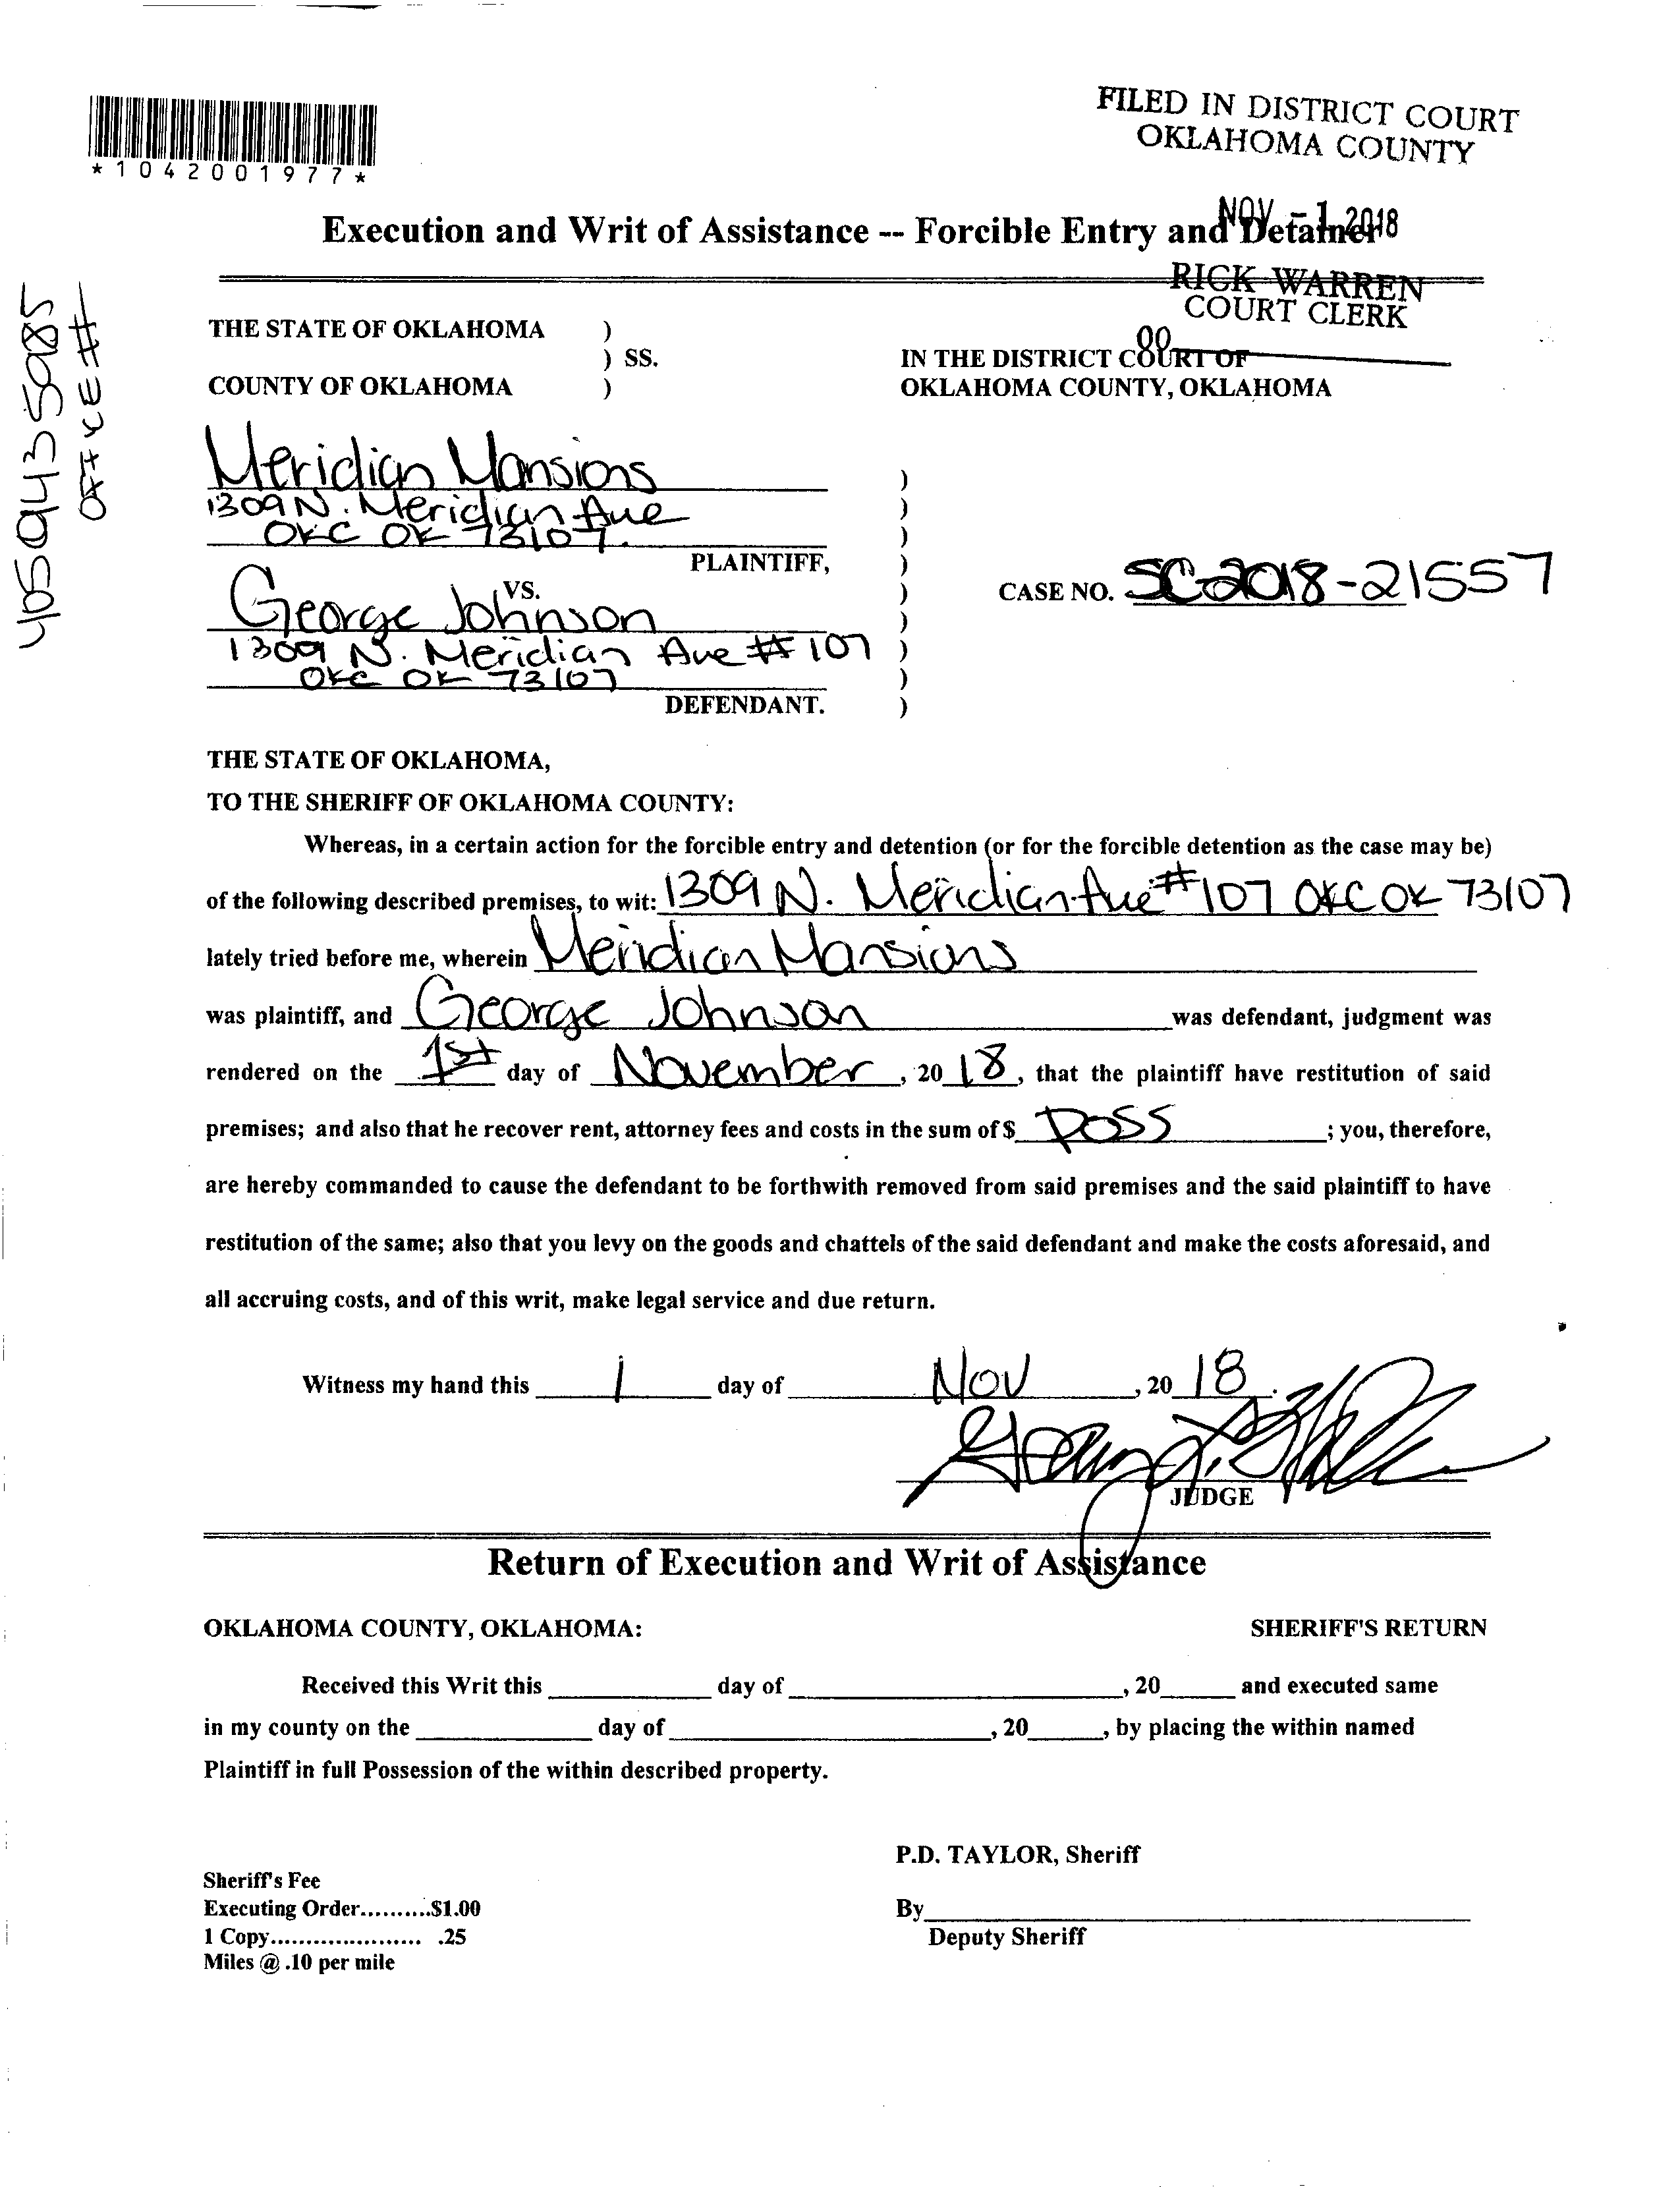 *1042001977*
FILED IN DISTRICT COURT
OKLAHOMA COUNTY
NOV - 1 2018
Execution and Writ of Assistance -- Forcible Entry and Detainer
RICK WARREN
COURT CLERK
00
4059435985
OFFICE #
THE STATE OF OKLAHOMA )
) SS.
COUNTY OF OKLAHOMA )
IN THE DISTRICT COURT OF
OKLAHOMA COUNTY, OKLAHOMA
Meridian Mansions )
1309 N. Meridian Ave )
OKC OK 73107. )
PLAINTIFF, )
VS. )
CASE NO. SC-2018-21557
George Johnson )
1309 N. Meridian Ave # 107 )
OKC OK 73107 )
DEFENDANT. )
THE STATE OF OKLAHOMA,
TO THE SHERIFF OF OKLAHOMA COUNTY:
Whereas, in a certain action for the forcible entry and detention (or for the forcible detention as the case may be)
of the following described premises, to wit: 1309 N. Meridian Ave # 107 OKC OK 73107
lately tried before me, wherein Meridian Mansions
was plaintiff, and George Johnson was defendant, judgment was
rendered on the 1st day of November, 2018, that the plaintiff have restitution of said
premises; and also that he recover rent, attorney fees and costs in the sum of $ Poss ; you, therefore,
are hereby commanded to cause the defendant to be forthwith removed from said premises and the said plaintiff to have
restitution of the same; also that you levy on the goods and chattels of the said defendant and make the costs aforesaid, and
all accruing costs, and of this writ, make legal service and due return.
Witness my hand this 1 day of Nov, 2018.
JUDGE
Return of Execution and Writ of Assistance
OKLAHOMA COUNTY, OKLAHOMA: SHERIFF'S RETURN
Received this Writ this ____ day of ____, 20____ and executed same
in my county on the ____ day of ____, 20____, by placing the within named
Plaintiff in full Possession of the within described property.
P.D. TAYLOR, Sheriff
Sheriff's Fee
Executing Order..........$1.00
By____
1 Copy..................... .25
Deputy Sheriff
Miles @ .10 per mile